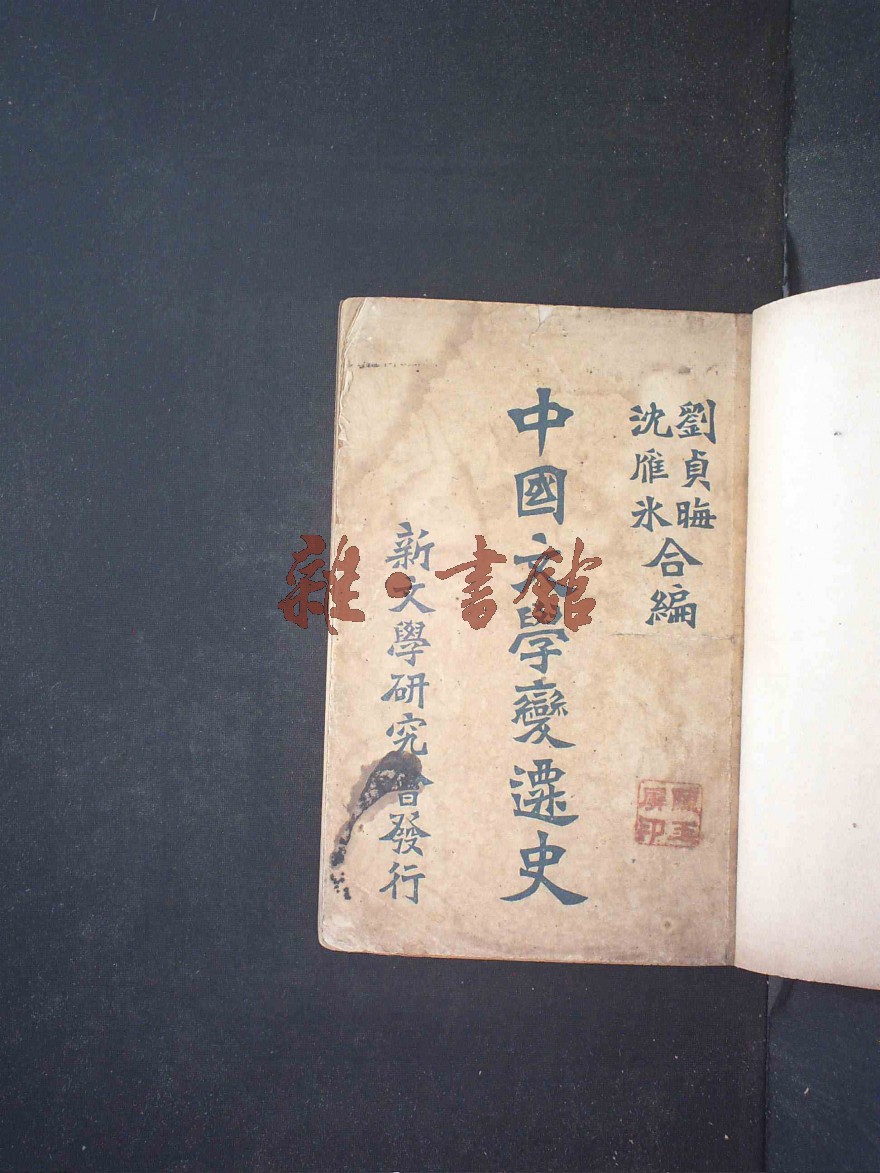 劉貞晦
沈雁冰
合編
中國文學變遷史
新文學研究會發行
雜·書館